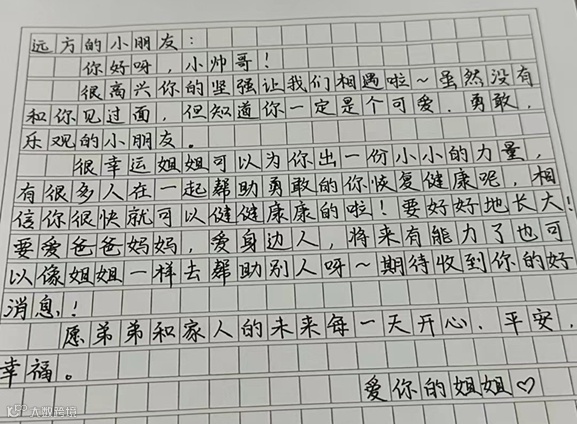 远方的小朋友：
你好呀，小帅哥！
很高兴你的坚强让我们相遇啦～虽然没有
和你见过面，但知道你一定是个可爱、勇敢、
乐观的小朋友。
很幸运姐姐可以为你出一份小小的力量，
有很多人在一起帮助勇敢的你恢复健康呢，相
信你很快就可以健健康康的啦！要好好地长大！
要爱爸爸妈妈，爱身边人，将来有能力了也可
以像姐姐一样去帮助别人呀～期待收到你的好
消息！
愿弟弟和家人的未来每一天开心、平安、
幸福。
爱你的姐姐♡
大数跨境